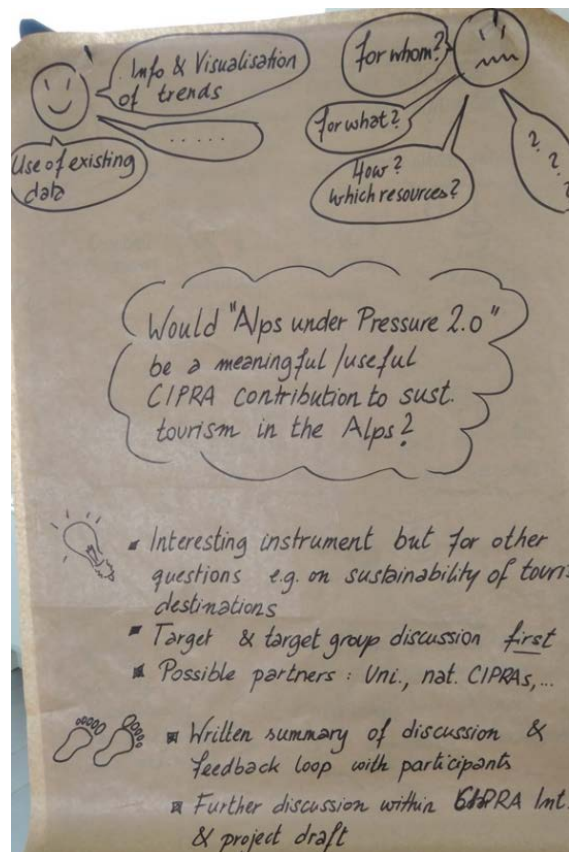 Info & Visualisation
of trends
.....
Use of existing
data
for whom?
for what?
How?
which resources?
?
?
?
Would "Alps under Pressure 2.0"
be a meaningful/useful
CIPRA contribution to sust.
tourism in the Alps?
Interesting instrument but for other
questions e.g. on sustainability of touris
destinations
Target & target group discussion first
Possible partners: Uni., nat. CIPRAs,...
Written summary of discussion &
feedback loop with participants
Further discussion within CIPRA Int.
& project draft